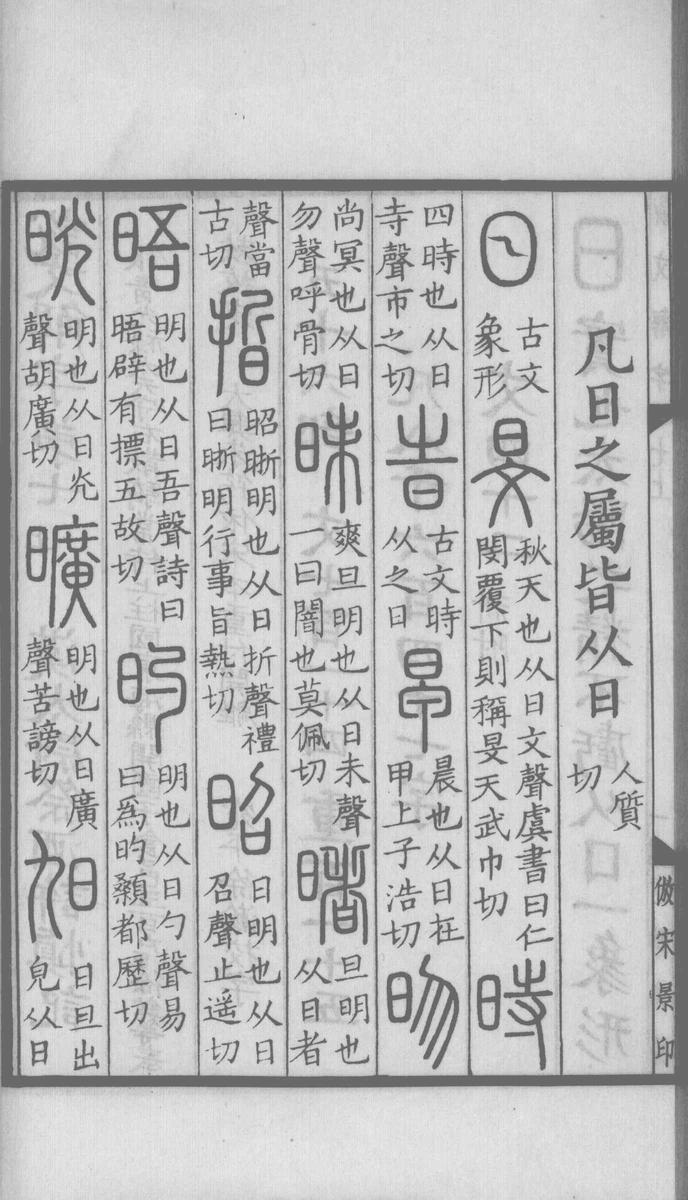 凡日之屬皆从日人質切
日古文象形旻秋天也从日文聲虞書曰仁閔覆下則稱旻天武巾切時
四時也从日寺聲市之切旹古文時从之日早晨也从日在甲上子浩切昒
尚冥也从日勿聲呼骨切昧爽旦明也从日未聲一曰闇也莫佩切睹旦明也从日者
聲當古切晢昭晣明也从日折聲禮曰晣明行事旨熱切昭日明也从日召聲止遥切
晤明也从日吾聲詩曰晤辟有摽五故切旳明也从日勺聲易曰爲旳顙都歷切
晄明也从日炗聲胡廣切曠明也从日廣聲苦謗切旭日旦出皃从日
倣宋景印